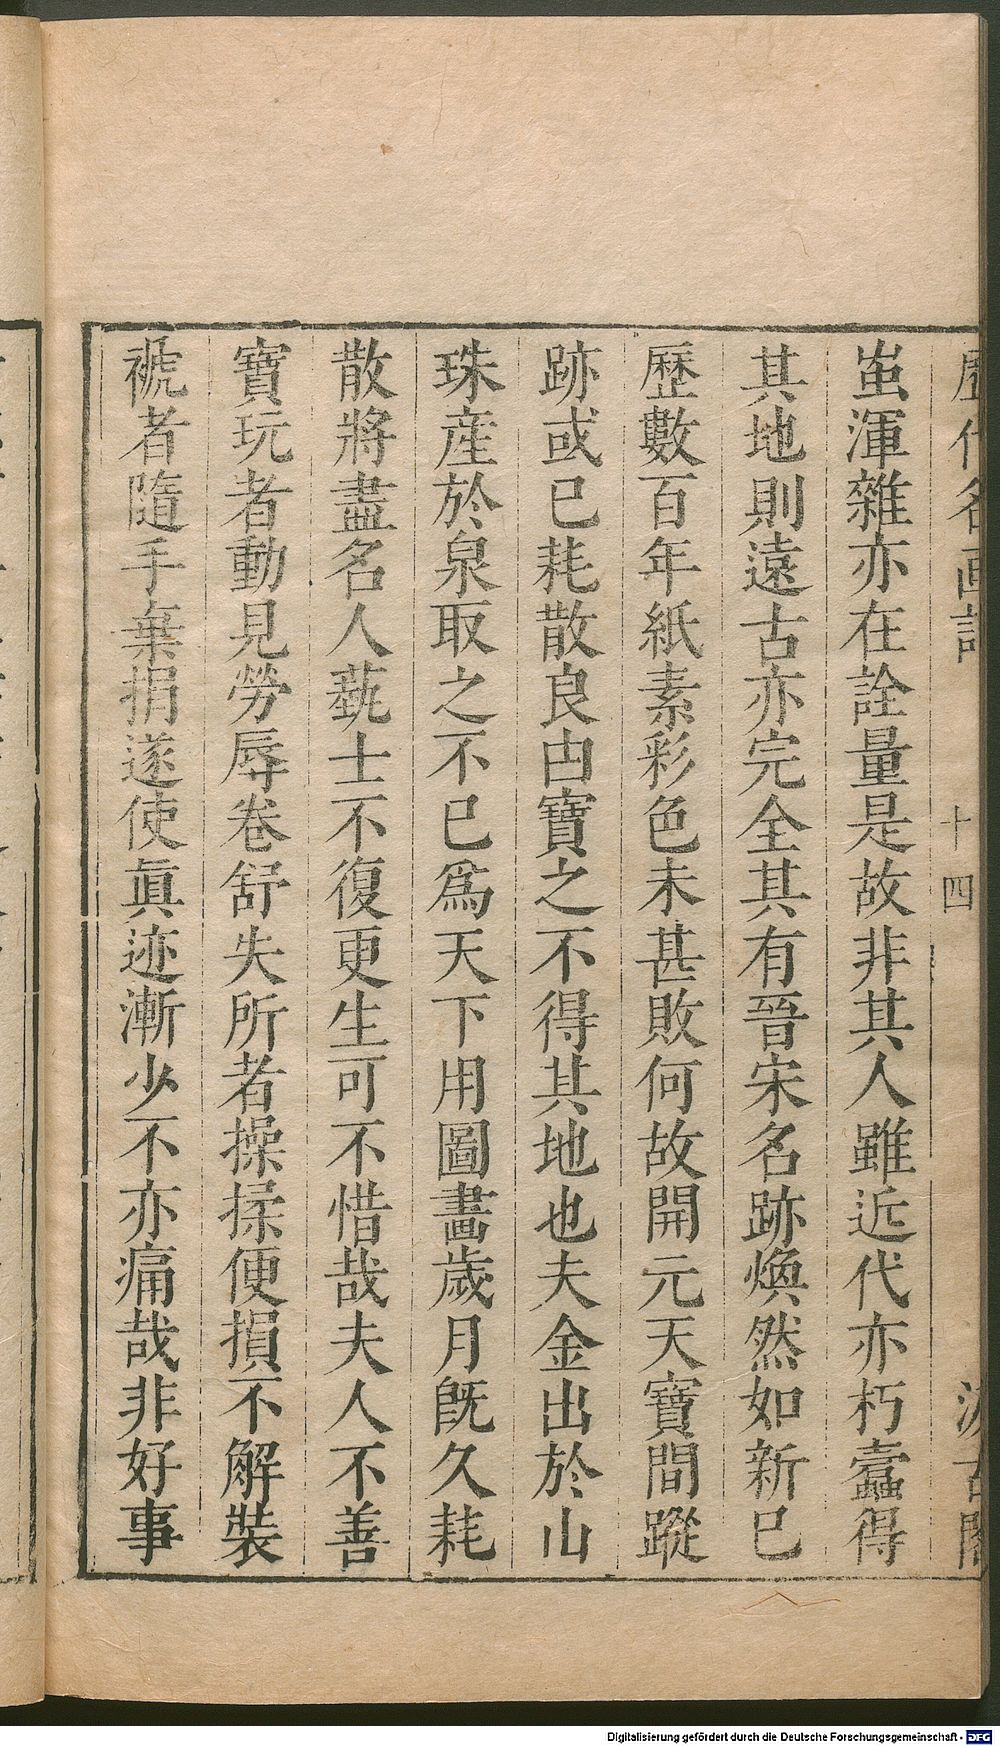 歷代名画記 十四 汲古閣
蚩渾雜亦在詮量是故非其人雖近代亦朽蠹得
其地則遠古亦完全其有晉宋名跡煥然如新巳
歷數百年紙素彩色未甚敗何故開元天寶間蹤
跡或巳耗散良由寶之不得其地也夫金出於山
珠産於泉取之不巳爲天下用圖畵歲月旣久耗
散將盡名人蓺士不復更生可不惜哉夫人不善
寶玩者動見勞辱卷舒失所者操揉便損不解裝
褫者隨手棄捐遂使眞迹漸少不亦痛哉非好事
Digitalisierung gefördert durch die Deutsche Forschungsgemeinschaft - DFG